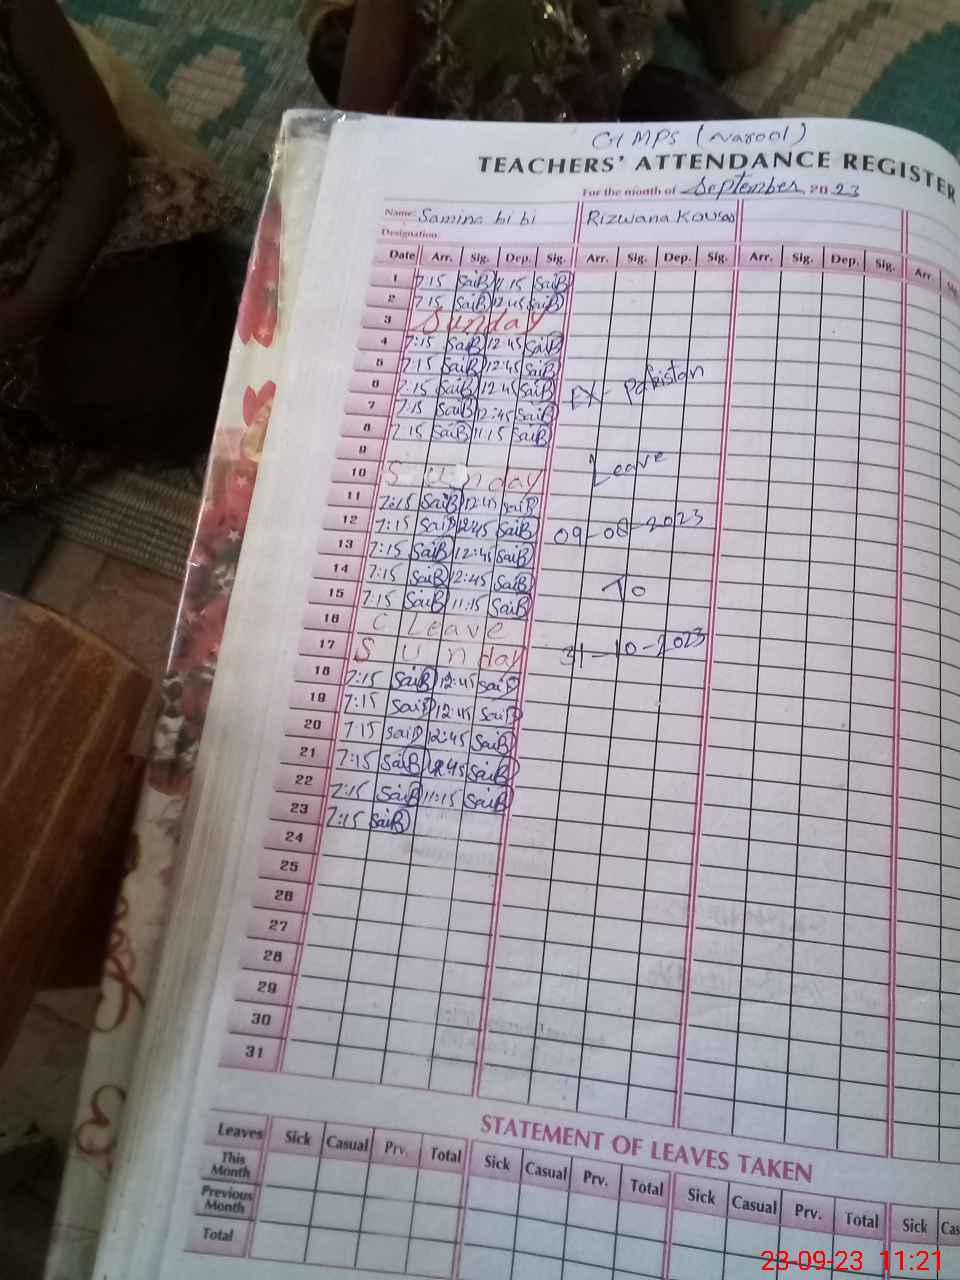 GIMPS (Narool)
TEACHERS' ATTENDANCE REGISTER
For the month of September 2023
Name: Samina bi bi Rizwana Kousa
Designation:
Date Arr. Sig. Dep. Sig. Arr. Sig. Dep. Sig. Arr. Sig. Dep. Sig. Arr.
1 7:15 SaiB 11:15 SaiB
2 7:15 SaiB 12:45 SaiB
3 Sunday
4 7:15 SaiB 12:45 SaiB
5 7:15 SaiB 12:45 SaiB
6 7:15 SaiB 12:45 SaiB EX- Pakistan
7 7:15 SaiB 12:45 SaiB
8 7:15 SaiB 11:15 SaiB
9
10 Sunday Leave
11 7:15 SaiB 12:45 SaiB
12 7:15 SaiB 12:45 SaiB 09-08-2023
13 7:15 SaiB 12:45 SaiB
14 7:15 SaiB 12:45 SaiB To
15 7:15 SaiB 11:15 SaiB
16 C Leave
17 Sunday 31-10-2023
18 7:15 SaiB 12:45 SaiB
19 7:15 SaiB 12:45 SaiB
20 7:15 SaiB 12:45 SaiB
21 7:15 SaiB 12:45 SaiB
22 7:15 SaiB 11:15 SaiB
23 7:15 SaiB
24
25
26
27
28
29
30
31
STATEMENT OF LEAVES TAKEN
Leaves Sick Casual Prv. Total Sick Casual Prv. Total Sick Casual Prv. Total Sick Cas
This Month
Previous Month
Total
23-09-23 11:21